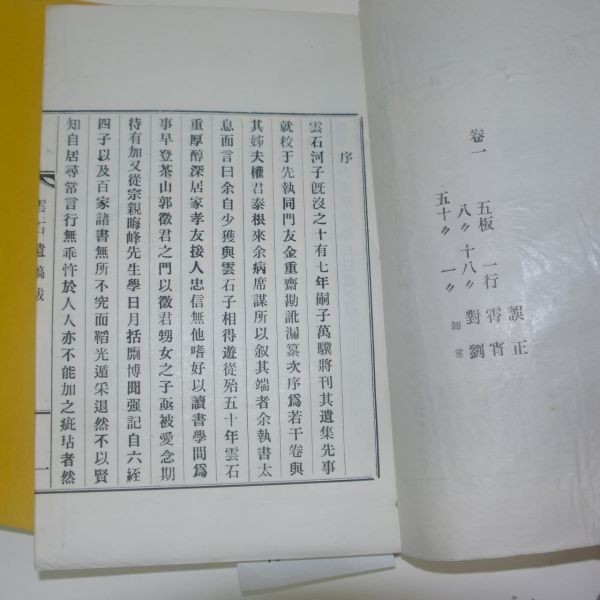 卷一
五板 一行 誤 正
八〃 十八〃 霄 宵
五十〃 一〃 對 劉
師 常
序
雲石河子旣沒之十有七年嗣子萬驥將刊其遺集先事
就校于先執同門友金重齋勘訛漏纂次序爲若干卷與
其姊夫權君泰根來余病席謀所以叙其端者余執書太
息而言曰余自少獲與雲石子相得遊從殆五十年雲石
重厚醇深居家孝友接人忠信無他嗜好以讀書學問爲
事早登茶山郭徵君之門以徵君甥女之子亟被愛念期
待有加又從宗親晦峰先生學日月括劘博聞强記自六経
四子以及百家諸書無所不究而韜光遁采退然不以賢
知自居尋常言行無乖忤於人人亦不能加之疵玷者然
雲石遺稿 跋 一